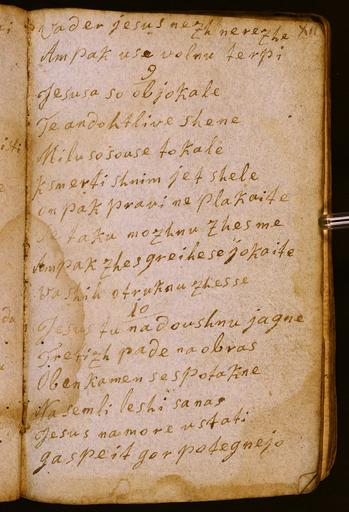 Vader jesus nezh nerezhe XII
Ampak use volnu terpi
9
Jesusa so objokale
Te andohtlive shene
Milu so souse tokale
ksmerti shnim jet shele
on pak pravi ne plakaite
taku mozhnu zhes me
Ampak zhes greihe se jokaite
vashih otruknu zhesse
10
Jesus tu nadoushnu jagne
Tretizh pade na obras
Oben kamen se spotakne
Na semli leshi sa nas
Jesus namore ustati
ga speit gor potegnejo